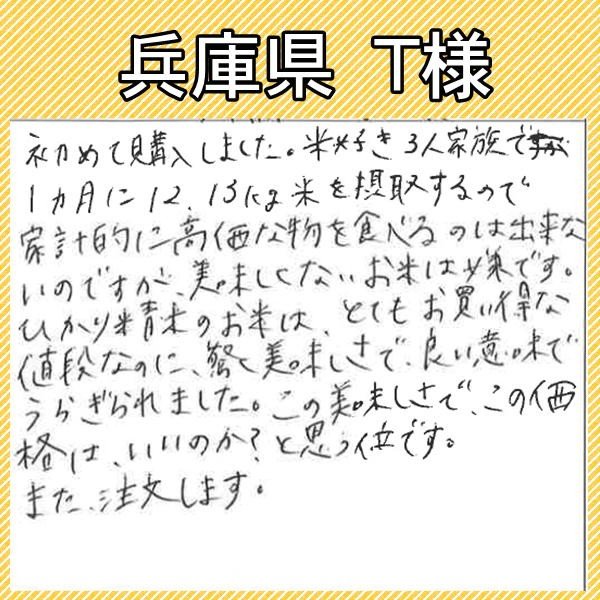 兵庫県 T様
初めて購入しました。米好き3人家族で
1カ月に12、13kg米を摂取するので
家計的に高価な物を食べるのは出来な
いのですが、美味しくないお米は嫌です。
ひかり精米のお米は、とてもお買い得な
値段なのに、驚く美味しさで、良い意味で
うらぎられました。この美味しさで、この価
格は、いいのか?と思う位です。
また、注文します。